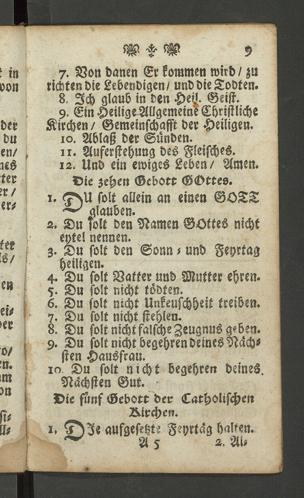 9
7. Von danen Er kommen wird / zu
richten die Lebendigen / und die Todten.
8. Ich glaub in den Heil. Geist.
9. Ein Heilige Allgemeine Christliche
Kirchen / Gemeinschafft der Heiligen.
10. Ablaß der Sünden.
11. Auferstehung des Fleisches.
12. Und ein ewiges Leben / Amen.
Die zehen Gebott GOttes.
1. DU solt allein an einen GOTT
glauben.
2. Du solt den Namen GOttes nicht
eytel nennen.
3. Du solt den Sonn- und Feyrtag
heiligen.
4. Du solt Vatter und Mutter ehren.
5. Du solt nicht tödten.
6. Du solt nicht Unkeuschheit treiben.
7. Du solt nicht stehlen.
8. Du solt nicht falsche Zeugnus geben.
9. Du solt nicht begehren deines Näch-
sten Hausfrau.
10. Du solt nicht begehren deines
Nächsten Gut.
Die fünf Gebott der Catholischen
Kirchen.
1. DIe aufgesetzte Feyrtäg halten.
A 5 2. Al-